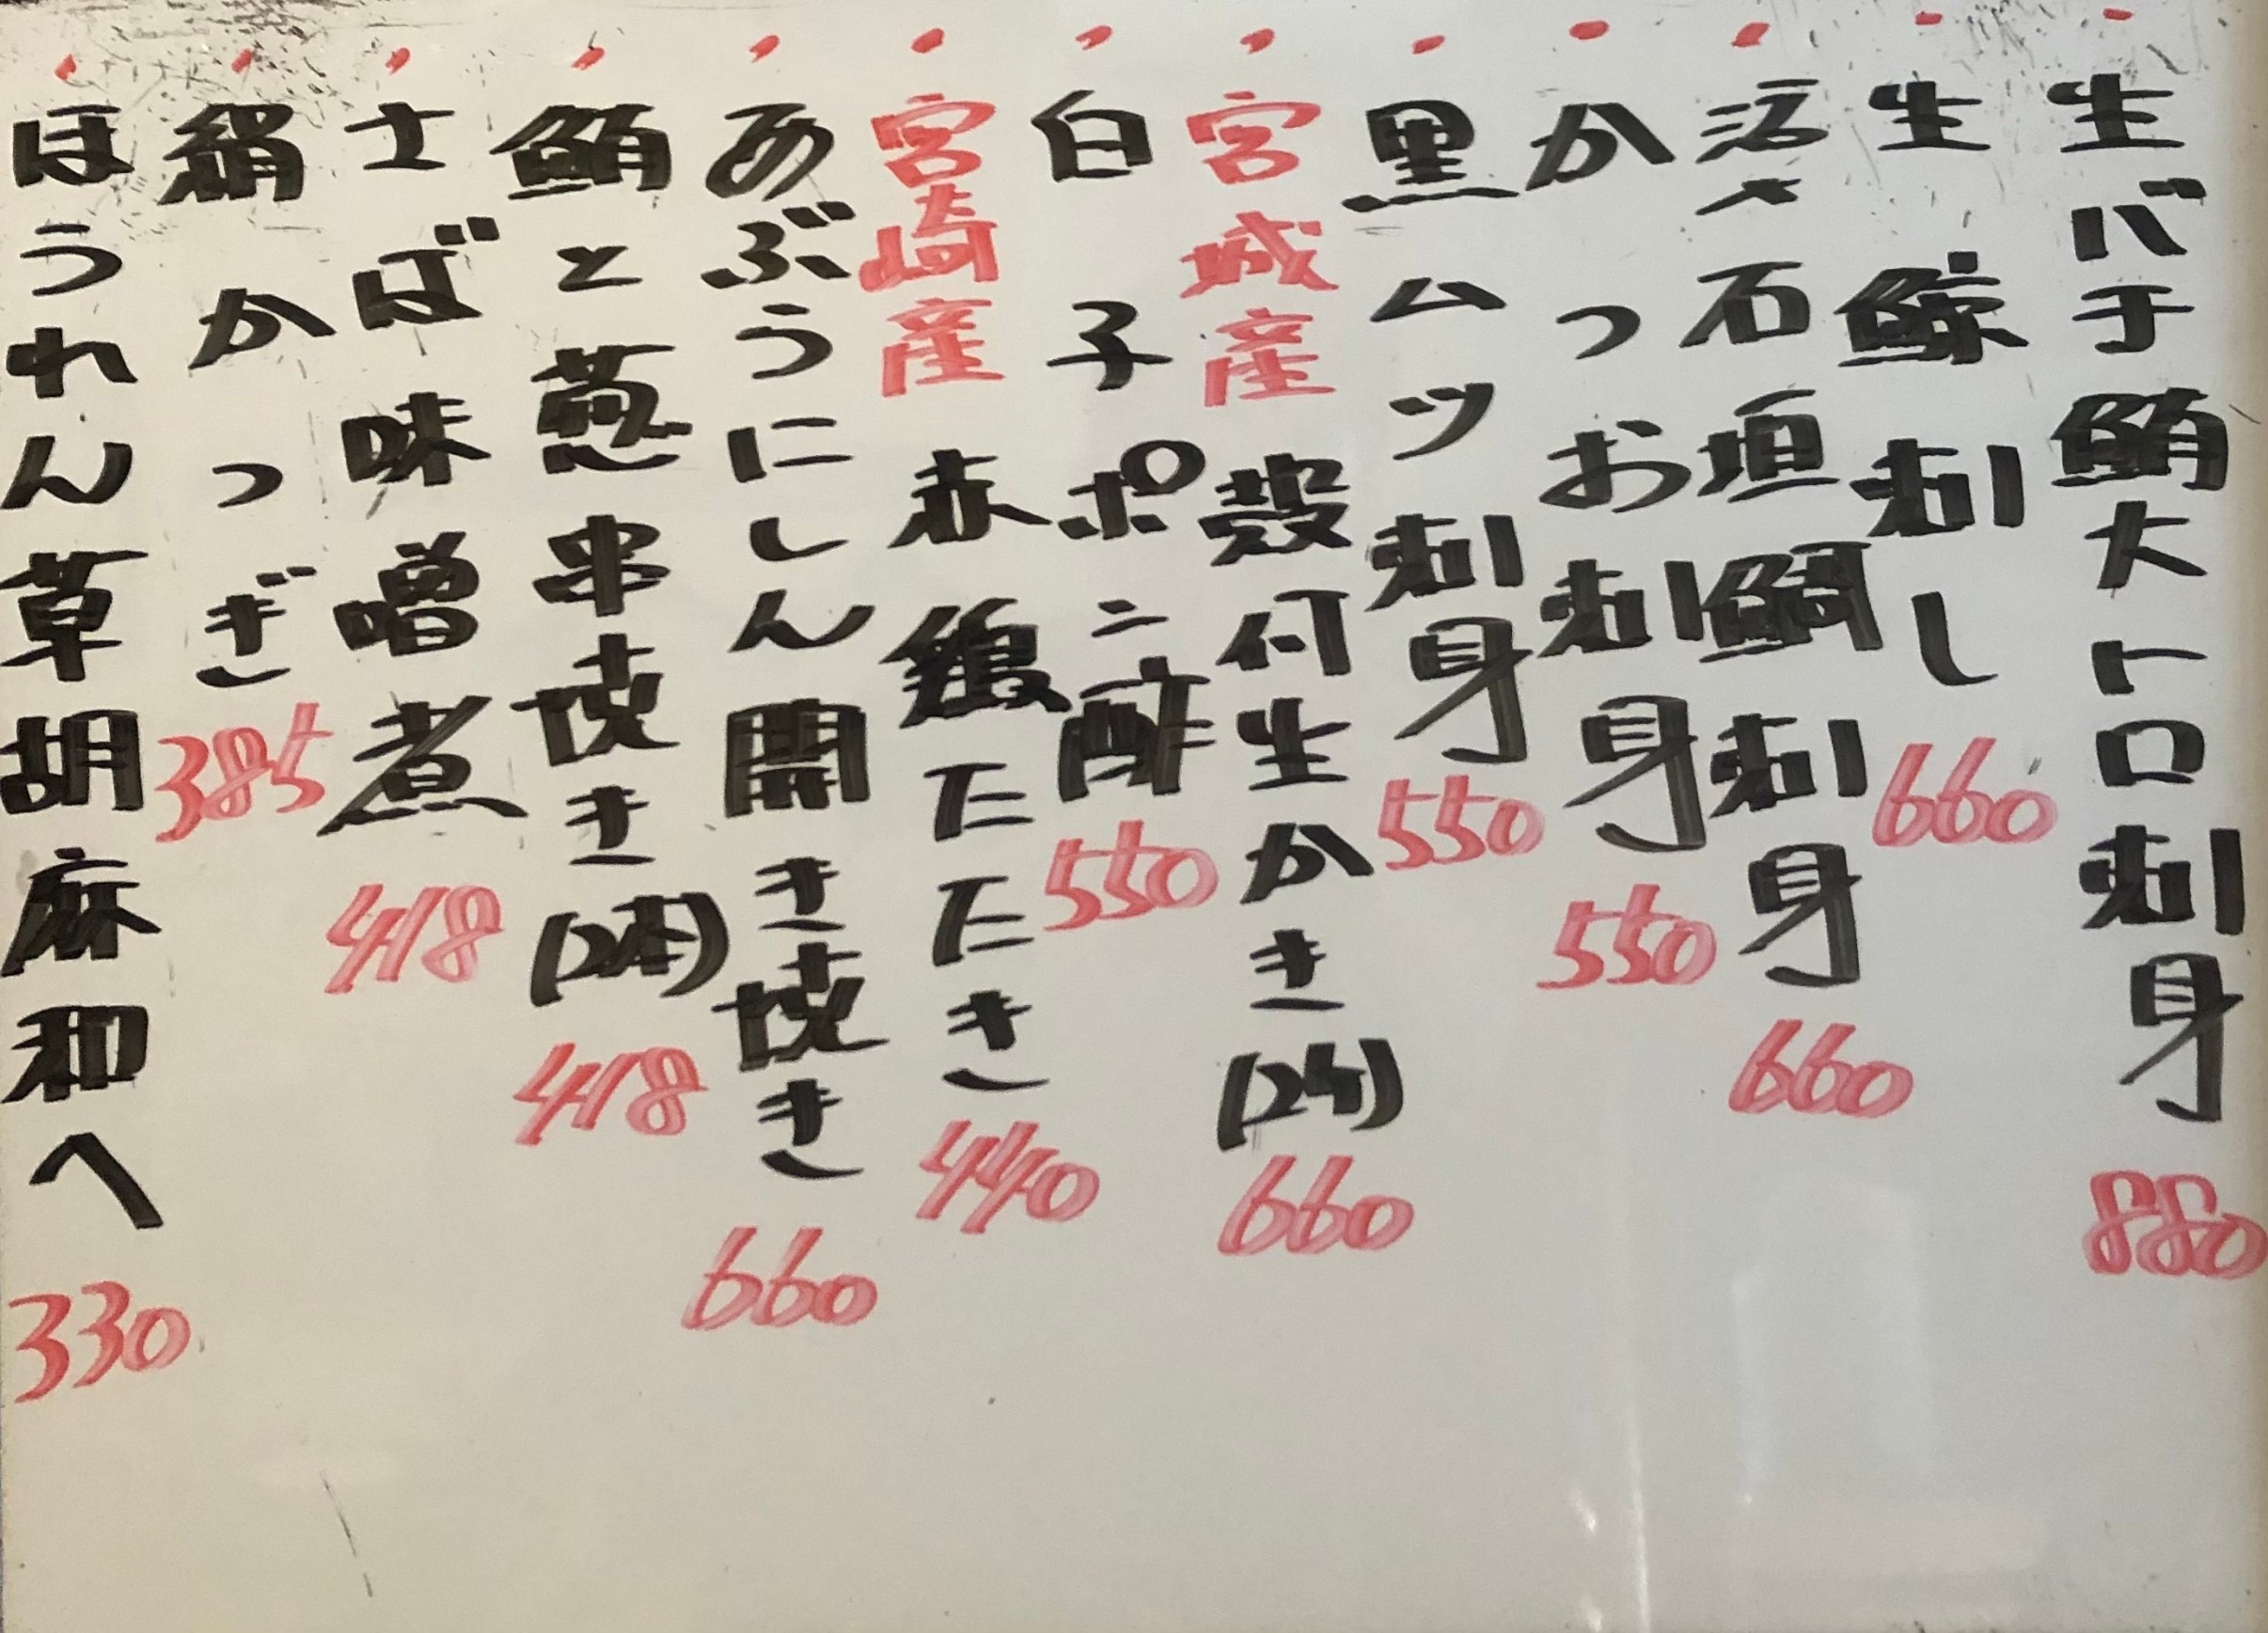 ・生バチ鮪大トロ刺身 880
・生鯨刺し 660
・活〆石垣鯛刺身 660
・かつお刺身 550
・黒ムツ刺身 550
・宮城産殻付生かき(2ケ) 660
・白子ポン酢 550
・宮崎産赤鶏たたき 440
・あぶらにしん開き焼き 660
・鮪と葱串焼き(2本) 418
・さば味噌煮 418
・絹かつぎ 385
・ほうれん草胡麻和へ 330